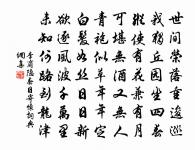 世間榮落重逡巡
我獨丘園坐四春
縱使有花兼有月
可堪無酒又無人
青袍似草年年定
白髮如絲日日新
欲逐風波千萬里
未知何路到龍津
李商隱春日寄懷詞典
網集